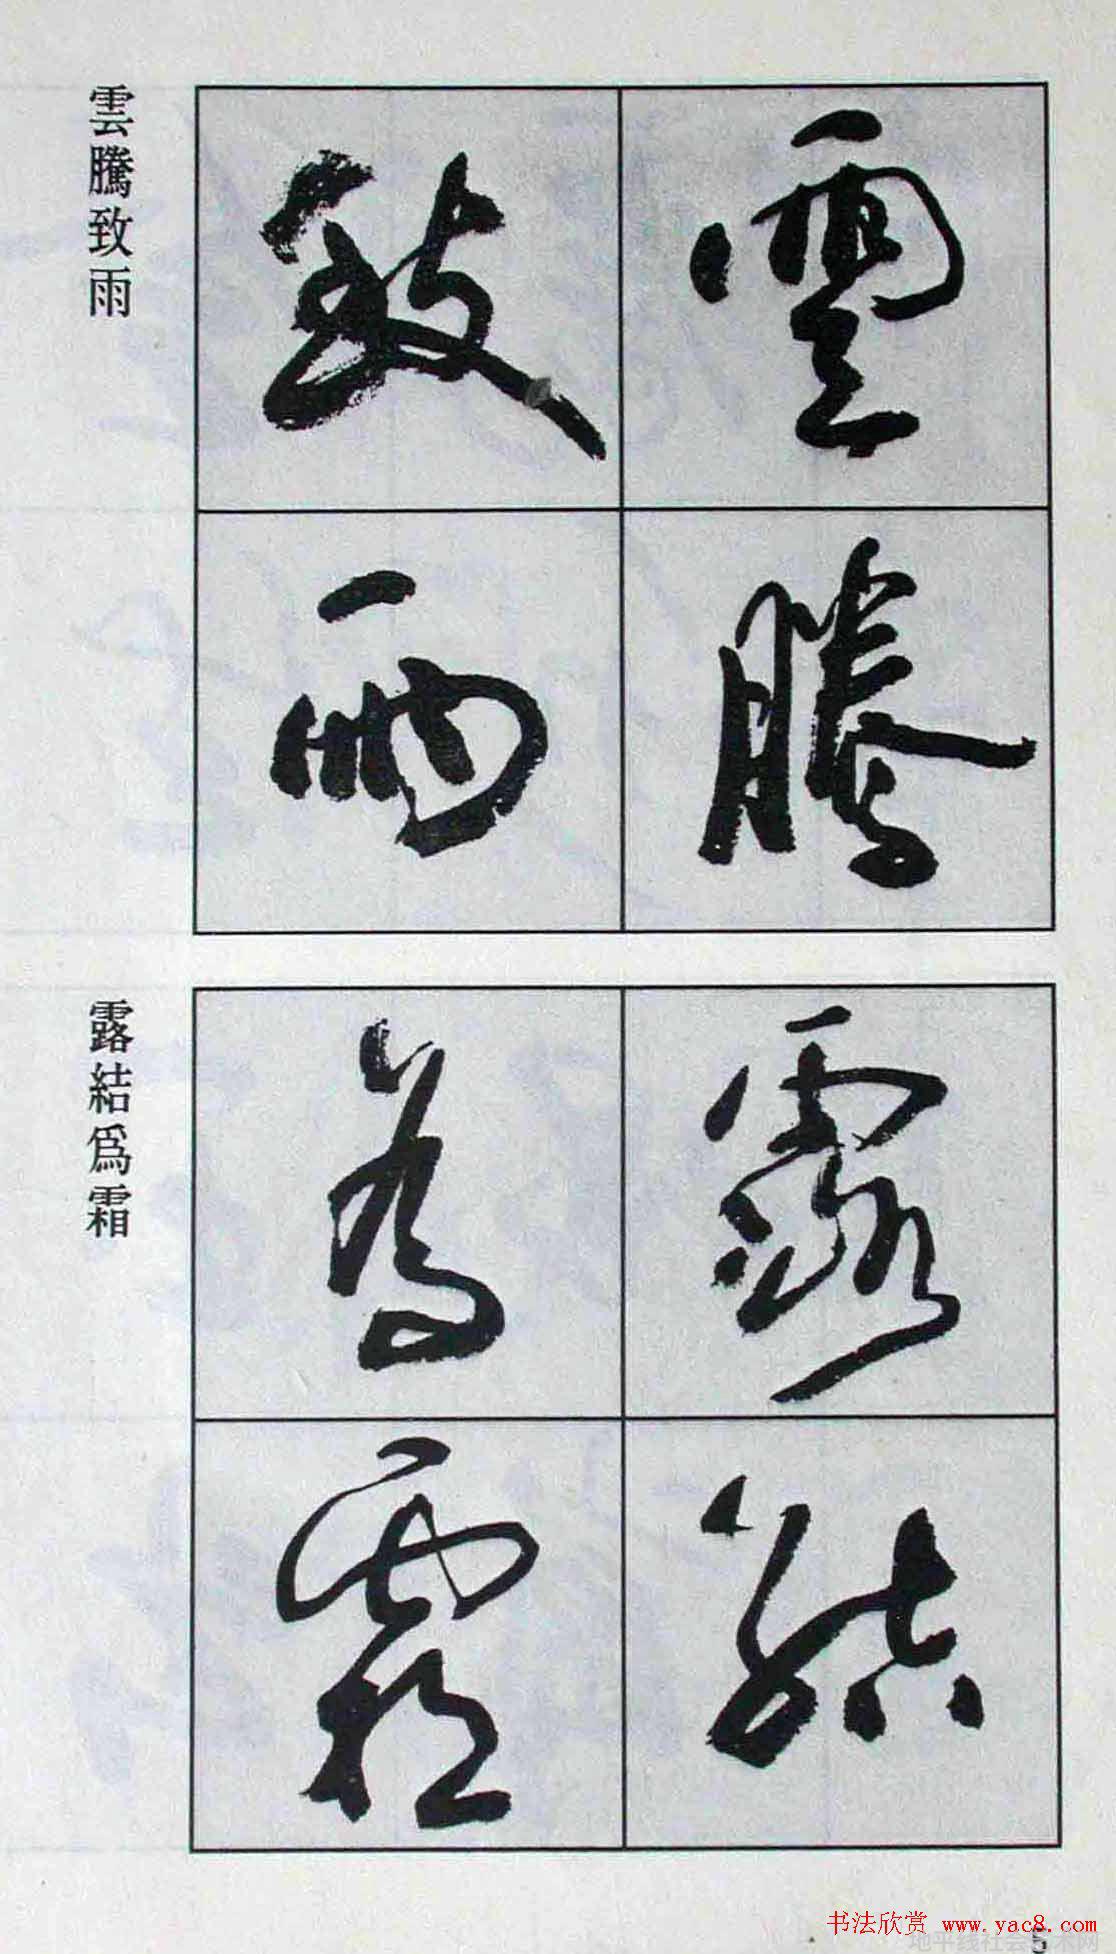 雲騰
致雨
雲騰致雨
露結
為霜
露結爲霜
书法欣赏 www.yac8.com
5